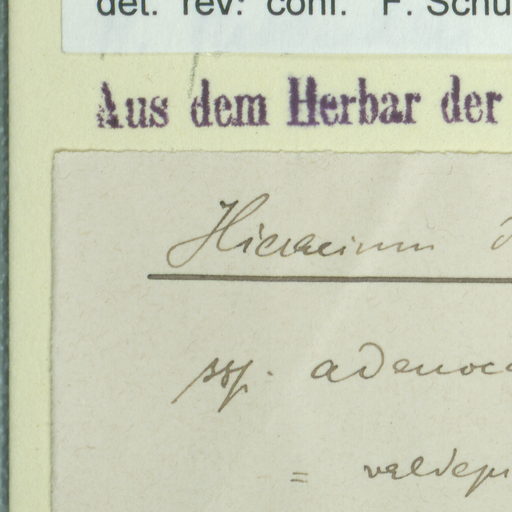 det. rev: conf. F. Schu
Aus dem Herbar der
Hieracium
ssp. adenoc
= valdepi